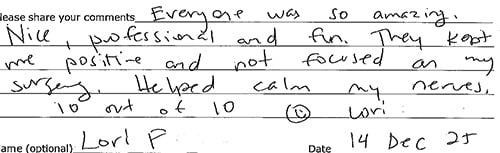 lease share your comments Everyone was so amazing.
Nice, professional and fun. They kept
me positive and not focused on my
surgery. Helped calm my nerves.
10 out of 10 ☺ Lori
ame (optional) Lori P Date 14 Dec 25